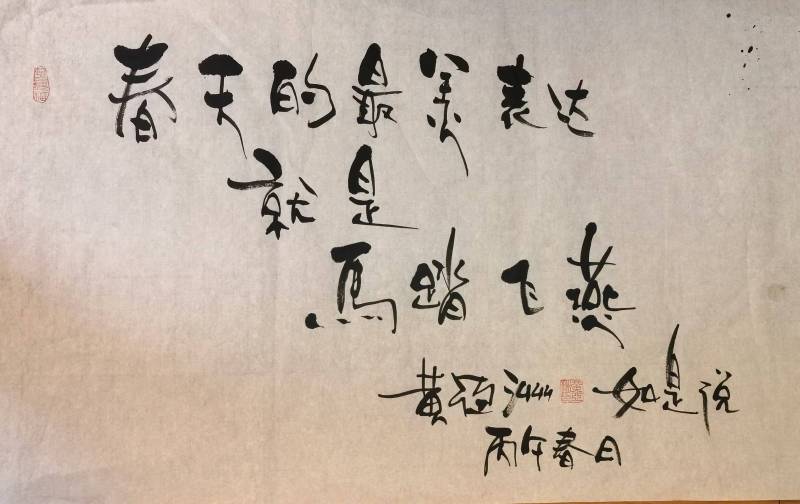 春天的最美表达
就是
馬踏飞燕
黄 洲 如是说
丙午春日